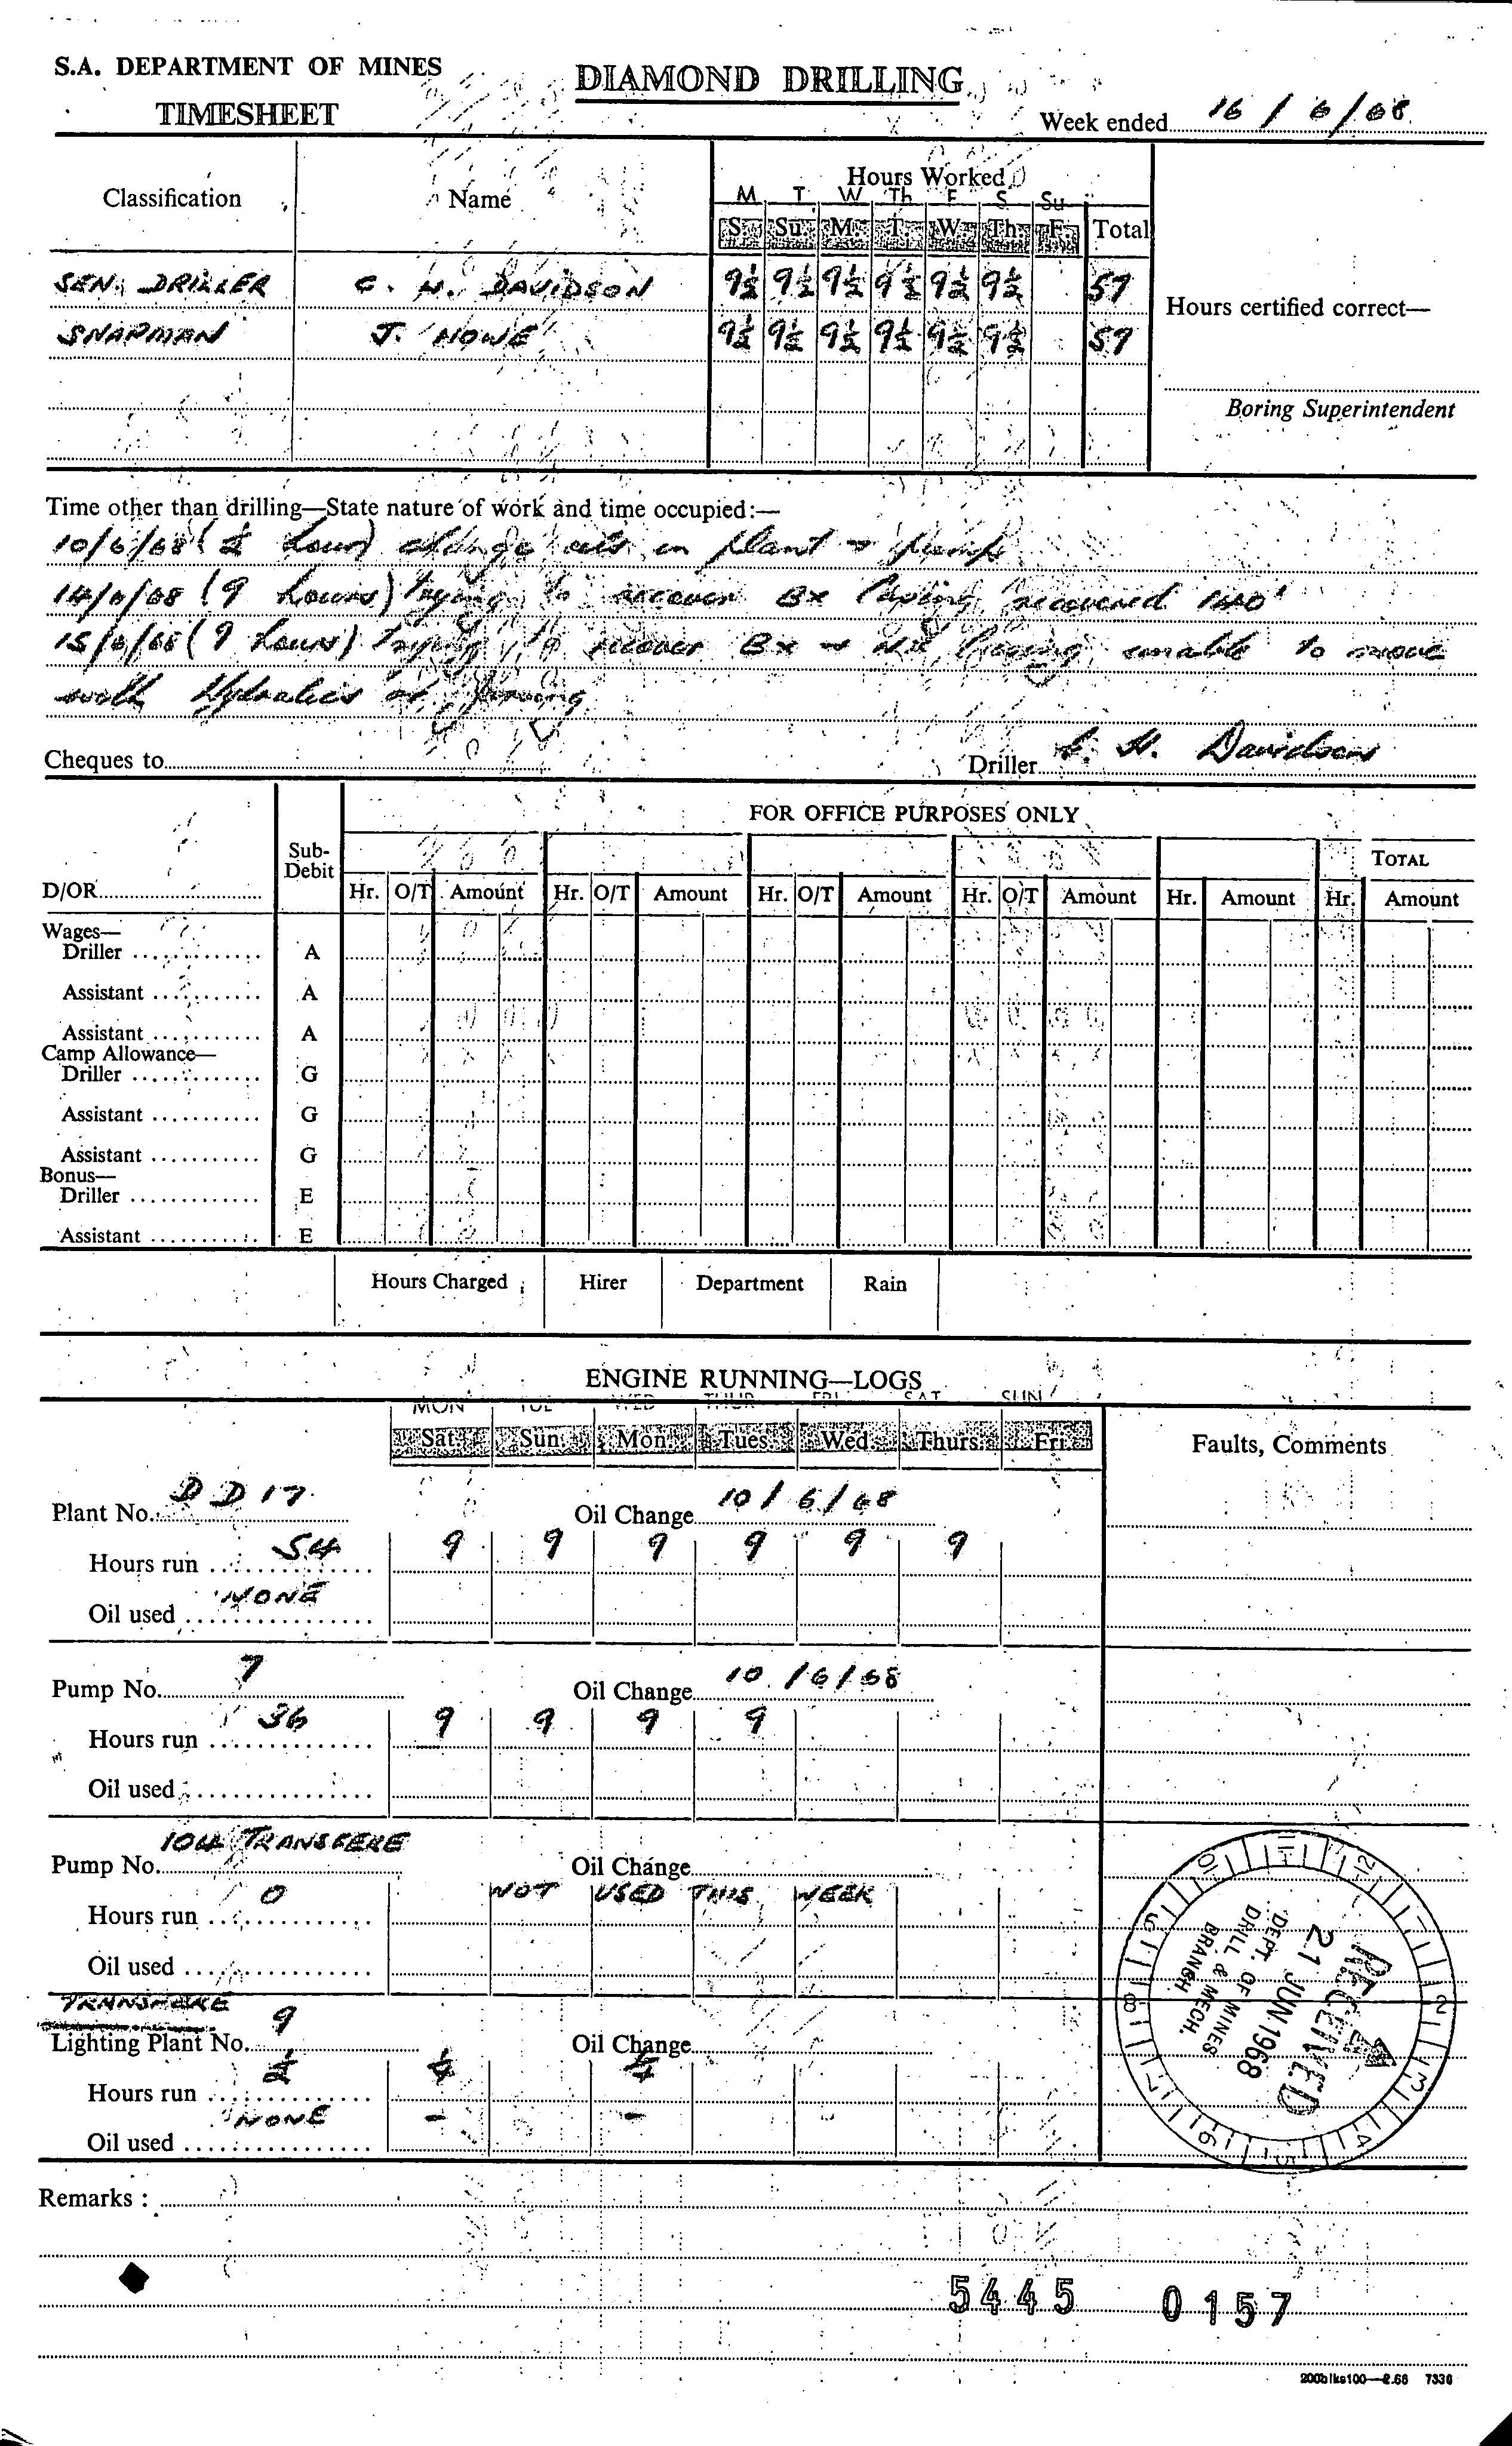 S.A. DEPARTMENT OF MINES
DIAMOND DRILLING
TIMESHEET
Week ended 16/6/68
Classification Name Hours Worked
M T W Th F S Su
S. Su. M. T. W. Th. F. Total
SEN. DRILLER C. H. DAVIDSON 9½ 9½ 9½ 9½ 9½ 9½ 57
Hours certified correct—
SNAPMAN J. HOWE 9½ 9½ 9½ 9½ 9½ 9½ 57
Boring Superintendent
Time other than drilling—State nature of work and time occupied:—
10/6/68 (½ hour) change oils in plant & pump
14/6/68 (9 hours) trying to recover Bx Casing recovered 140'
15/6/68 (9 hours) trying to recover Bx & casing unable to move
with Hydraulics or
Cheques to
Driller C. H. Davidson
FOR OFFICE PURPOSES ONLY
Sub-Debit
TOTAL
D/OR Hr. O/T Amount Hr. O/T Amount Hr. O/T Amount Hr. O/T Amount Hr. Amount Hr. Amount
Wages—
Driller A
Assistant A
Assistant A
Camp Allowance—
Driller G
Assistant G
Assistant G
Bonus—
Driller E
Assistant E
Hours Charged Hirer Department Rain
ENGINE RUNNING—LOGS
MON TUE WED THUR FRI SAT SUN
Sat. Sun. Mon. Tues. Wed. Thurs. Fri. Faults, Comments
Plant No. DD 17 Oil Change 10/6/68
Hours run 54 9 9 9 9 9 9
Oil used NONE
Pump No. 7 Oil Change 10/6/68
Hours run 36 9 9 9 9
Oil used
Pump No. 104 TRANSFERE Oil Change
Hours run 0 NOT USED THIS WEEK
Oil used
TRANSFERE
Lighting Plant No. 9 Oil Change
Hours run ½ ¼ ¼
Oil used NONE - -
RECEIVED
21 JUN 1968
DEPT. OF MINES
DRILL & MECH.
BRANCH
Remarks :
5445 0157
200blks100—2.66 7336